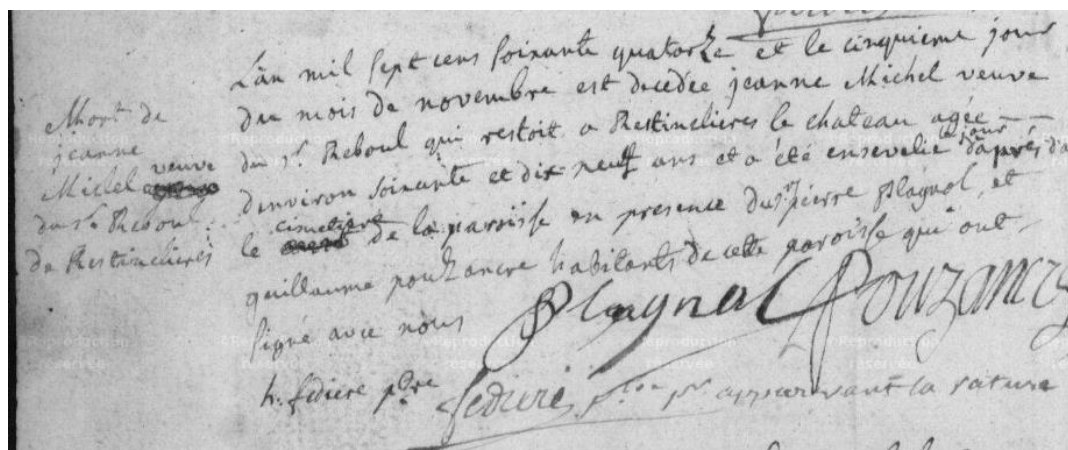 Mort de
jeanne
Michel veuve
du sr Reboul
de Restinclieres
L'an mil sept cens soixante quatorze et le cinquieme jour
du mois de novembre est decedée jeanne Michel veuve
du sr Reboul qui restoit a Restinclieres le chateau agée
d'environ soixante et dix neuf ans et a été ensevelie le jour d'après d'a
le cimetiere de la paroisse en presence du sr pierre Plagnol et
guillaume pouzancre habitants de cette paroisse qui ont
signé avec nous Plagnol Pouzancre
h. fediere pbre fediere appouvant la rature